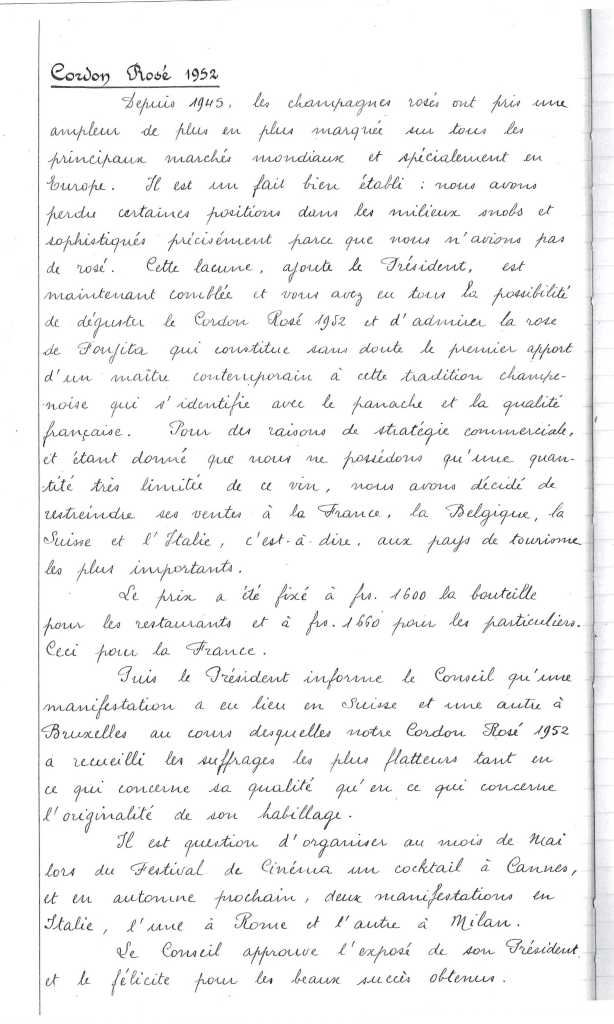 Cordon Rosé 1952
Depuis 1945, les champagnes rosés ont pris une
ampleur de plus en plus marquée sur tous les
principaux marchés mondiaux et spécialement en
Europe. Il est un fait bien établi : nous avons
perdu certaines positions dans les milieux snobs et
sophistiqués précisément parce que nous n'avions pas
de rosé. Cette lacune, ajoute le Président, est
maintenant comblée et vous avez eu tous la possibilité
de déguster le Cordon Rosé 1952 et d'admirer la rose
de Foujita qui constitue sans doute le premier apport
d'un maître contemporain à cette tradition champe-
noise qui s'identifie avec le panache et la qualité
française. Pour des raisons de stratégie commerciale,
et étant donné que nous ne possédons qu'une quan-
tité très limitée de ce vin, nous avons décidé de
restreindre ses ventes à la France, la Belgique, la
Suisse et l'Italie, c'est-à-dire, aux pays de tourisme
les plus importants.
Le prix a été fixé à frs. 1600 la bouteille
pour les restaurants et à frs. 1660 pour les particuliers.
Ceci pour la France.
Puis le Président informe le Conseil qu'une
manifestation a eu lieu en Suisse et une autre à
Bruxelles au cours desquelles notre Cordon Rosé 1952
a recueilli les suffrages les plus flatteurs tant en
ce qui concerne sa qualité qu'en ce qui concerne
l'originalité de son habillage.
Il est question d'organiser au mois de Mai
lors du Festival de Cinéma un cocktail à Cannes,
et en automne prochain, deux manifestations en
Italie, l'une à Rome et l'autre à Milan.
Le Conseil approuve l'exposé de son Président
et le félicite pour les beaux succès obtenus.